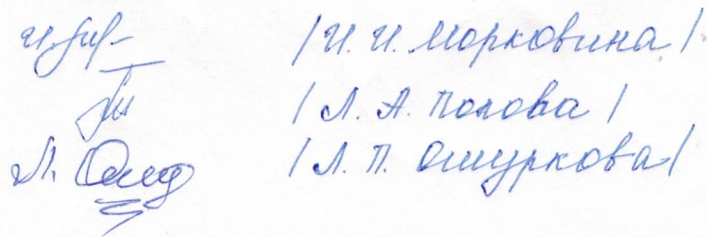 / И. И. Морковина /
/ Л. А. Попова /
/ Л. П. Ошуркова /